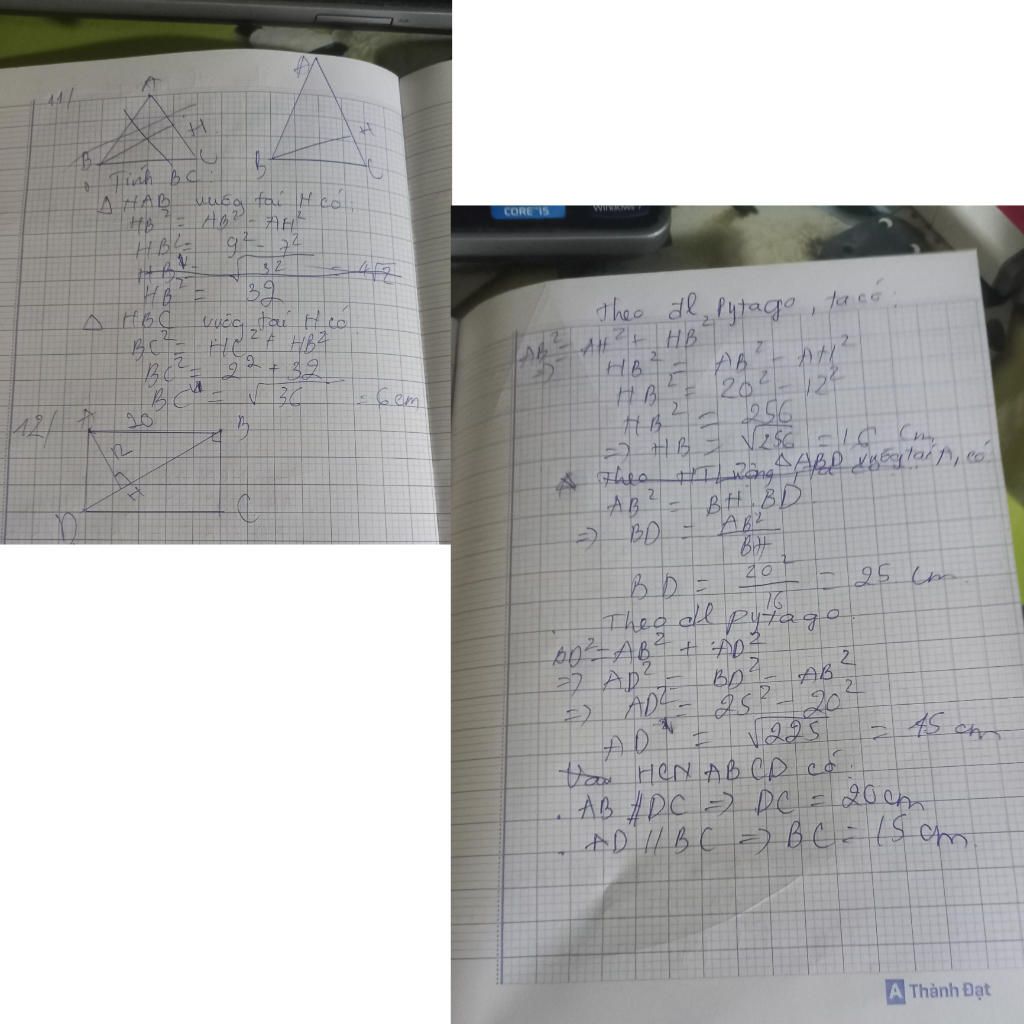 11/
A
H
B
C
A
H
B
C
Tính BC:
Δ HAB vuông tại H có:
HB² = AB² - AH²
HB² = 9² - 7²
HB = √32 = 4√2
HB² = 32
Δ HBC vuông tại H có
BC² = HC² + HB²
BC² = 2² + 32
BC = √36 = 6cm
12/
A 20 B
12
H
D C
CORE i5
Theo đl Pytago, ta có:
AB² = AH² + HB²
=> HB² = AB² - AH²
HB² = 20² - 12²
HB² = 256
=> HB = √256 = 16 cm
Theo HTL trong Δ ABD vuông tại A, có
AB² = BH . BD
=> BD = AB² / BH
BD = 20² / 16 = 25 cm
Theo đl pytago
BD² = AB² + AD²
=> AD² = BD² - AB²
=> AD² = 25² - 20²
AD = √225 = 15 cm
HCN ABCD có:
. AB // DC => DC = 20cm
. AD // BC => BC = 15 cm
A Thành Đạt